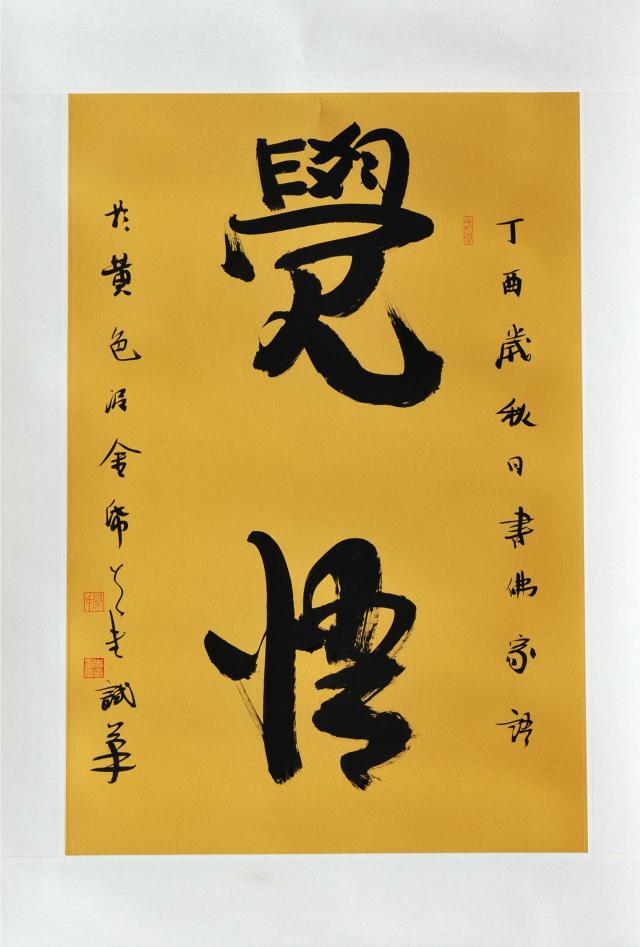 丁酉歲秋日書佛家語
覺悟
於黃色洒金紙
試筆